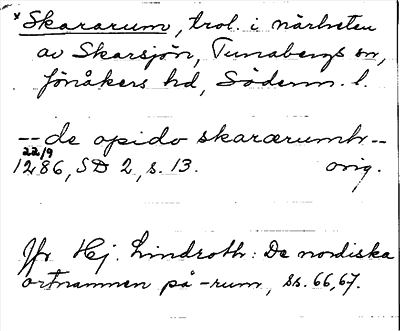 *Skararum, trol. i närheten
av Skarsjön, Tunabergs sn,
Jönåkers hd, Söderm. l.
-- de opido skararumh --
22/9
1286, SD 2, s. 13. orig.
Jfr Hj. Lindroth: De nordiska
ortnamnen på -rum, ss. 66, 67.